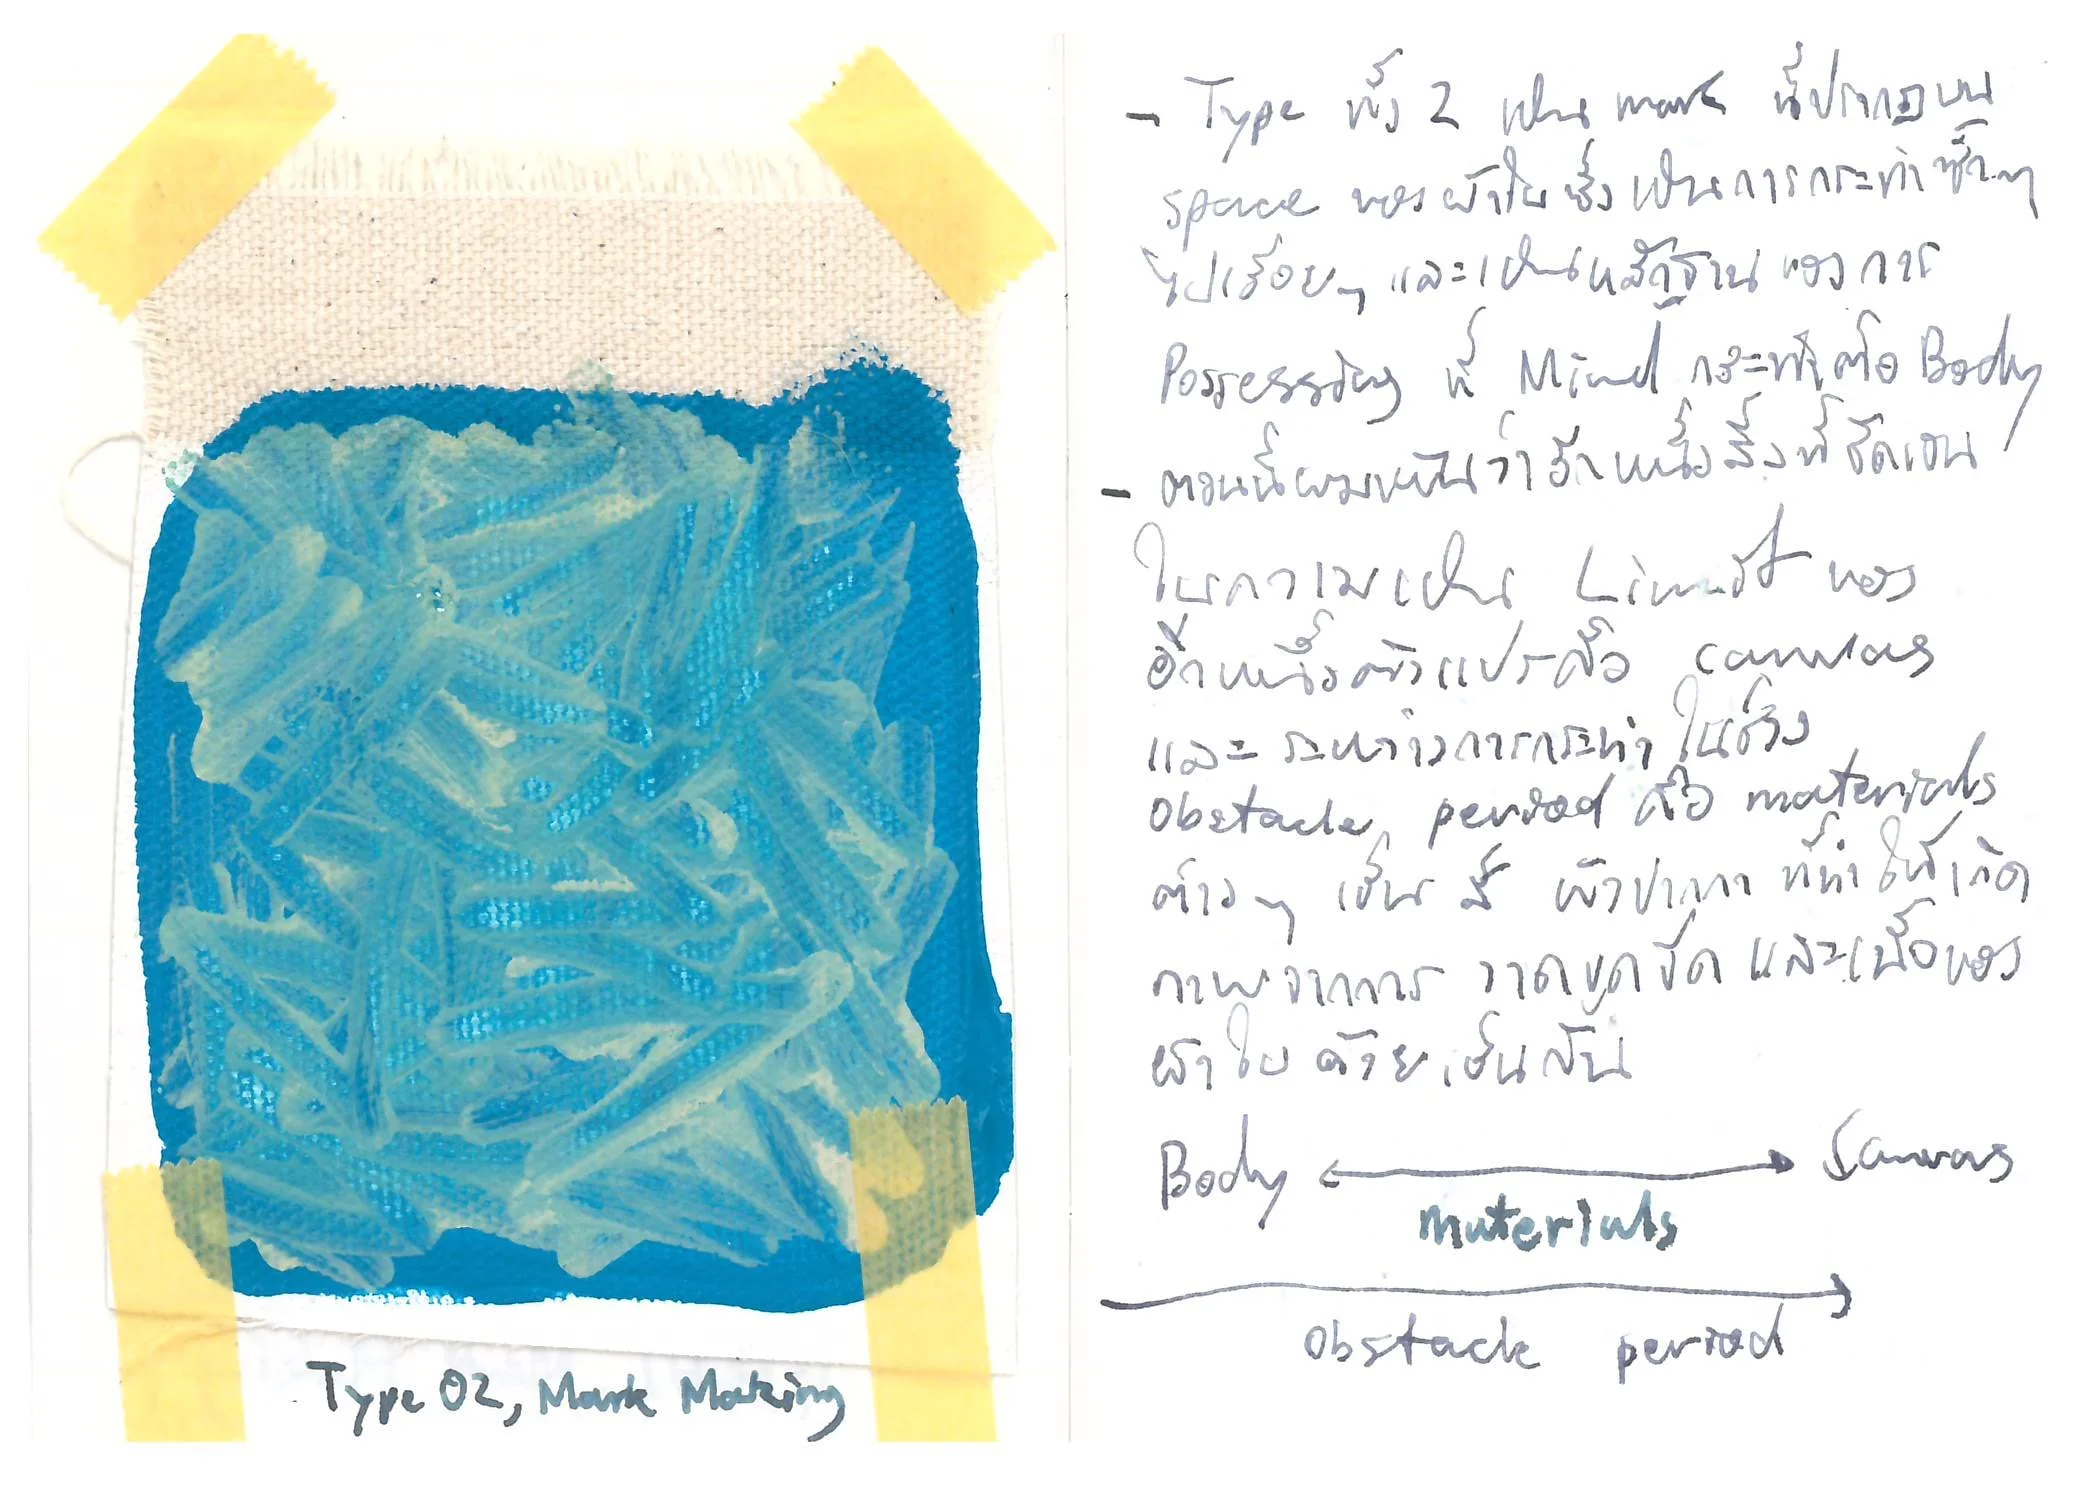 Type 02, Mark Making
- Type ทั้ง 2 เป็น mark ที่ปรากฏบน
space ของผ้าใบ ซึ่งเป็นการกระทำซ้ำๆ
ไปเรื่อยๆ และเป็นหลักฐานของการ
Possessing ที่ Mind กระทำต่อ Body
- ตอนนี้ผมเห็นว่าอีกหนึ่งสิ่งที่ชัดเจน
ในความเป็น Limit ของ
อีกหนึ่งตัวแปรคือ canvas
และระหว่างการกระทำในช่วง
obstacle period คือ materials
ต่างๆ เช่น สี หัวปากกา ที่ทำให้เกิด
ภาพจากการ วาดขูดขีด และเนื้อของ
ผ้าใบด้วยเช่นกัน
Body Canvas
materials
obstacle period